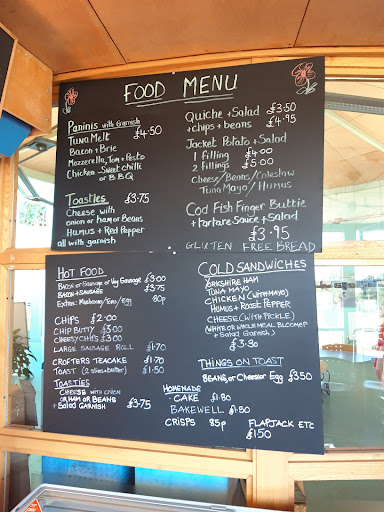 FOOD MENU
Paninis with Garnish
£4·50
Tuna Melt
Bacon + Brie
Mozzerella, Tom + Pesto
Chicken - Sweet chilli
or B.B.Q
Toasties £3·75
Cheese with
onion or ham or Beans
Humus + Red Pepper
all with garnish
Quiche + Salad £3·50
+ chips + beans £4·95
Jacket Potato + Salad
1 Filling £4·00
2 Fillings £5·00
Cheese/Beans/Coleslaw
Tuna Mayo/Humus
Cod Fish Finger Buttie
+ Tartare Sauce + Salad
£3·95
GLUTEN FREE BREAD
HOT FOOD
BACON or Sausage or Veg Sausage £3·00
BACON + SAUSAGE £3·75
Extras: Mushroom/Egg 80p
CHIPS £2·00
CHIP BUTTY £3·00
CHEESY CHIPS £3·00
LARGE SAUSAGE ROLL £1·70
CROFTERS TEACAKE £1·70
TOAST (2 slices + butter) £1·50
TOASTIES
CHEESE with ONION
OR HAM OR BEANS
+ Salad GARNISH £3·75
COLD SANDWICHES
YORKSHIRE HAM
TUNA MAYO
CHICKEN (WITH MAYO)
HUMUS + ROAST PEPPER
CHEESE (WITH PICKLE)
(WHITE OR WHOLE MEAL BLOOMER
+ Salad GARNISH)
£3·80
THINGS ON TOAST
BEANS or Cheese or Egg £3·50
HOMEMADE
· CAKE £1·80
BAKEWELL £1·50
CRISPS 85p
FLAPJACK ETC
£1·50